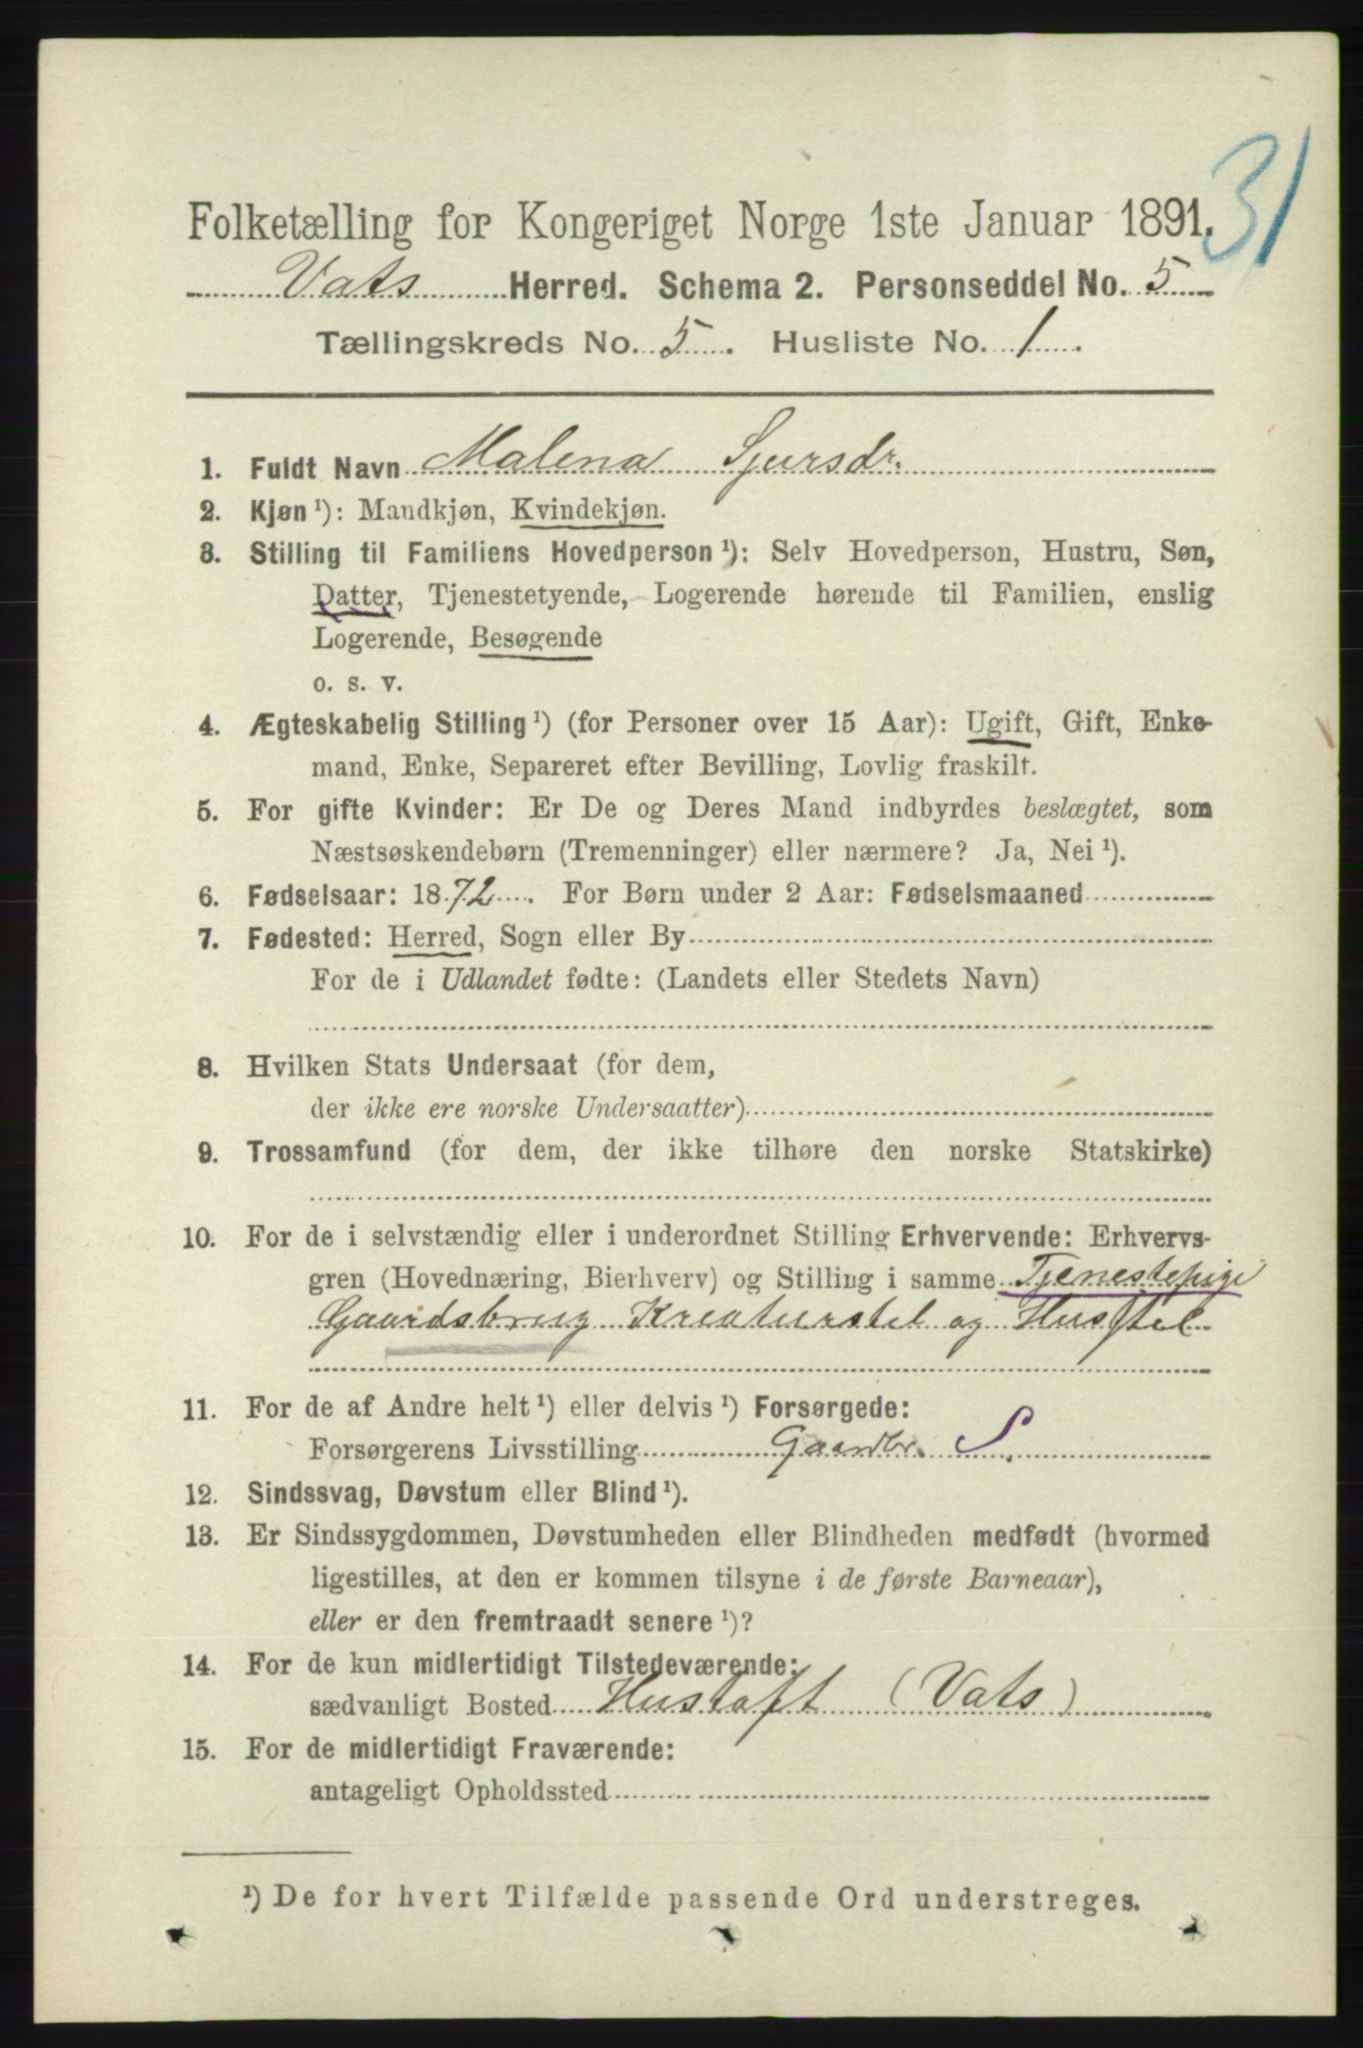 31
Folketælling for Kongeriget Norge 1ste Januar 1891.
Vats Herred. Schema 2. Personseddel No. 5
Tællingskreds No. 5. Husliste No. 1.
1. Fuldt Navn Malena Sjursdr.
2. Kjøn ¹): Mandkjøn, Kvindekjøn.
3. Stilling til Familiens Hovedperson ¹): Selv Hovedperson, Hustru, Søn,
Datter, Tjenestetyende, Logerende hørende til Familien, enslig
Logerende, Besøgende
o. s. v.
4. Ægteskabelig Stilling ¹) (for Personer over 15 Aar): Ugift, Gift, Enke-
mand, Enke, Separeret efter Bevilling, Lovlig fraskilt.
5. For gifte Kvinder: Er De og Deres Mand indbyrdes beslægtet, som
Næstsøskendebørn (Tremenninger) eller nærmere? Ja, Nei ¹).
6. Fødselsaar: 1872. For Børn under 2 Aar: Fødselsmaaned
7. Fødested: Herred, Sogn eller By
For de i Udlandet fødte: (Landets eller Stedets Navn)
8. Hvilken Stats Undersaat (for dem,
der ikke ere norske Undersaatter)
9. Trossamfund (for dem, der ikke tilhøre den norske Statskirke)
10. For de i selvstændig eller i underordnet Stilling Erhvervende: Erhvervs-
gren (Hovednæring, Bierhverv) og Stilling i samme Tjenestepige
Gaardsbrug Kreaturstel og Husstel
11. For de af Andre helt ¹) eller delvis ¹) Forsørgede:
Forsørgerens Livsstilling Gaardbr. S.
12. Sindssvag, Døvstum eller Blind ¹).
13. Er Sindssygdommen, Døvstumheden eller Blindheden medfødt (hvormed
ligestilles, at den er kommen tilsyne i de første Barneaar),
eller er den fremtraadt senere ¹)?
14. For de kun midlertidigt Tilstedeværende:
sædvanligt Bosted Hustoft (Vats)
15. For de midlertidigt Fraværende:
antageligt Opholdssted
¹) De for hvert Tilfælde passende Ord understreges.